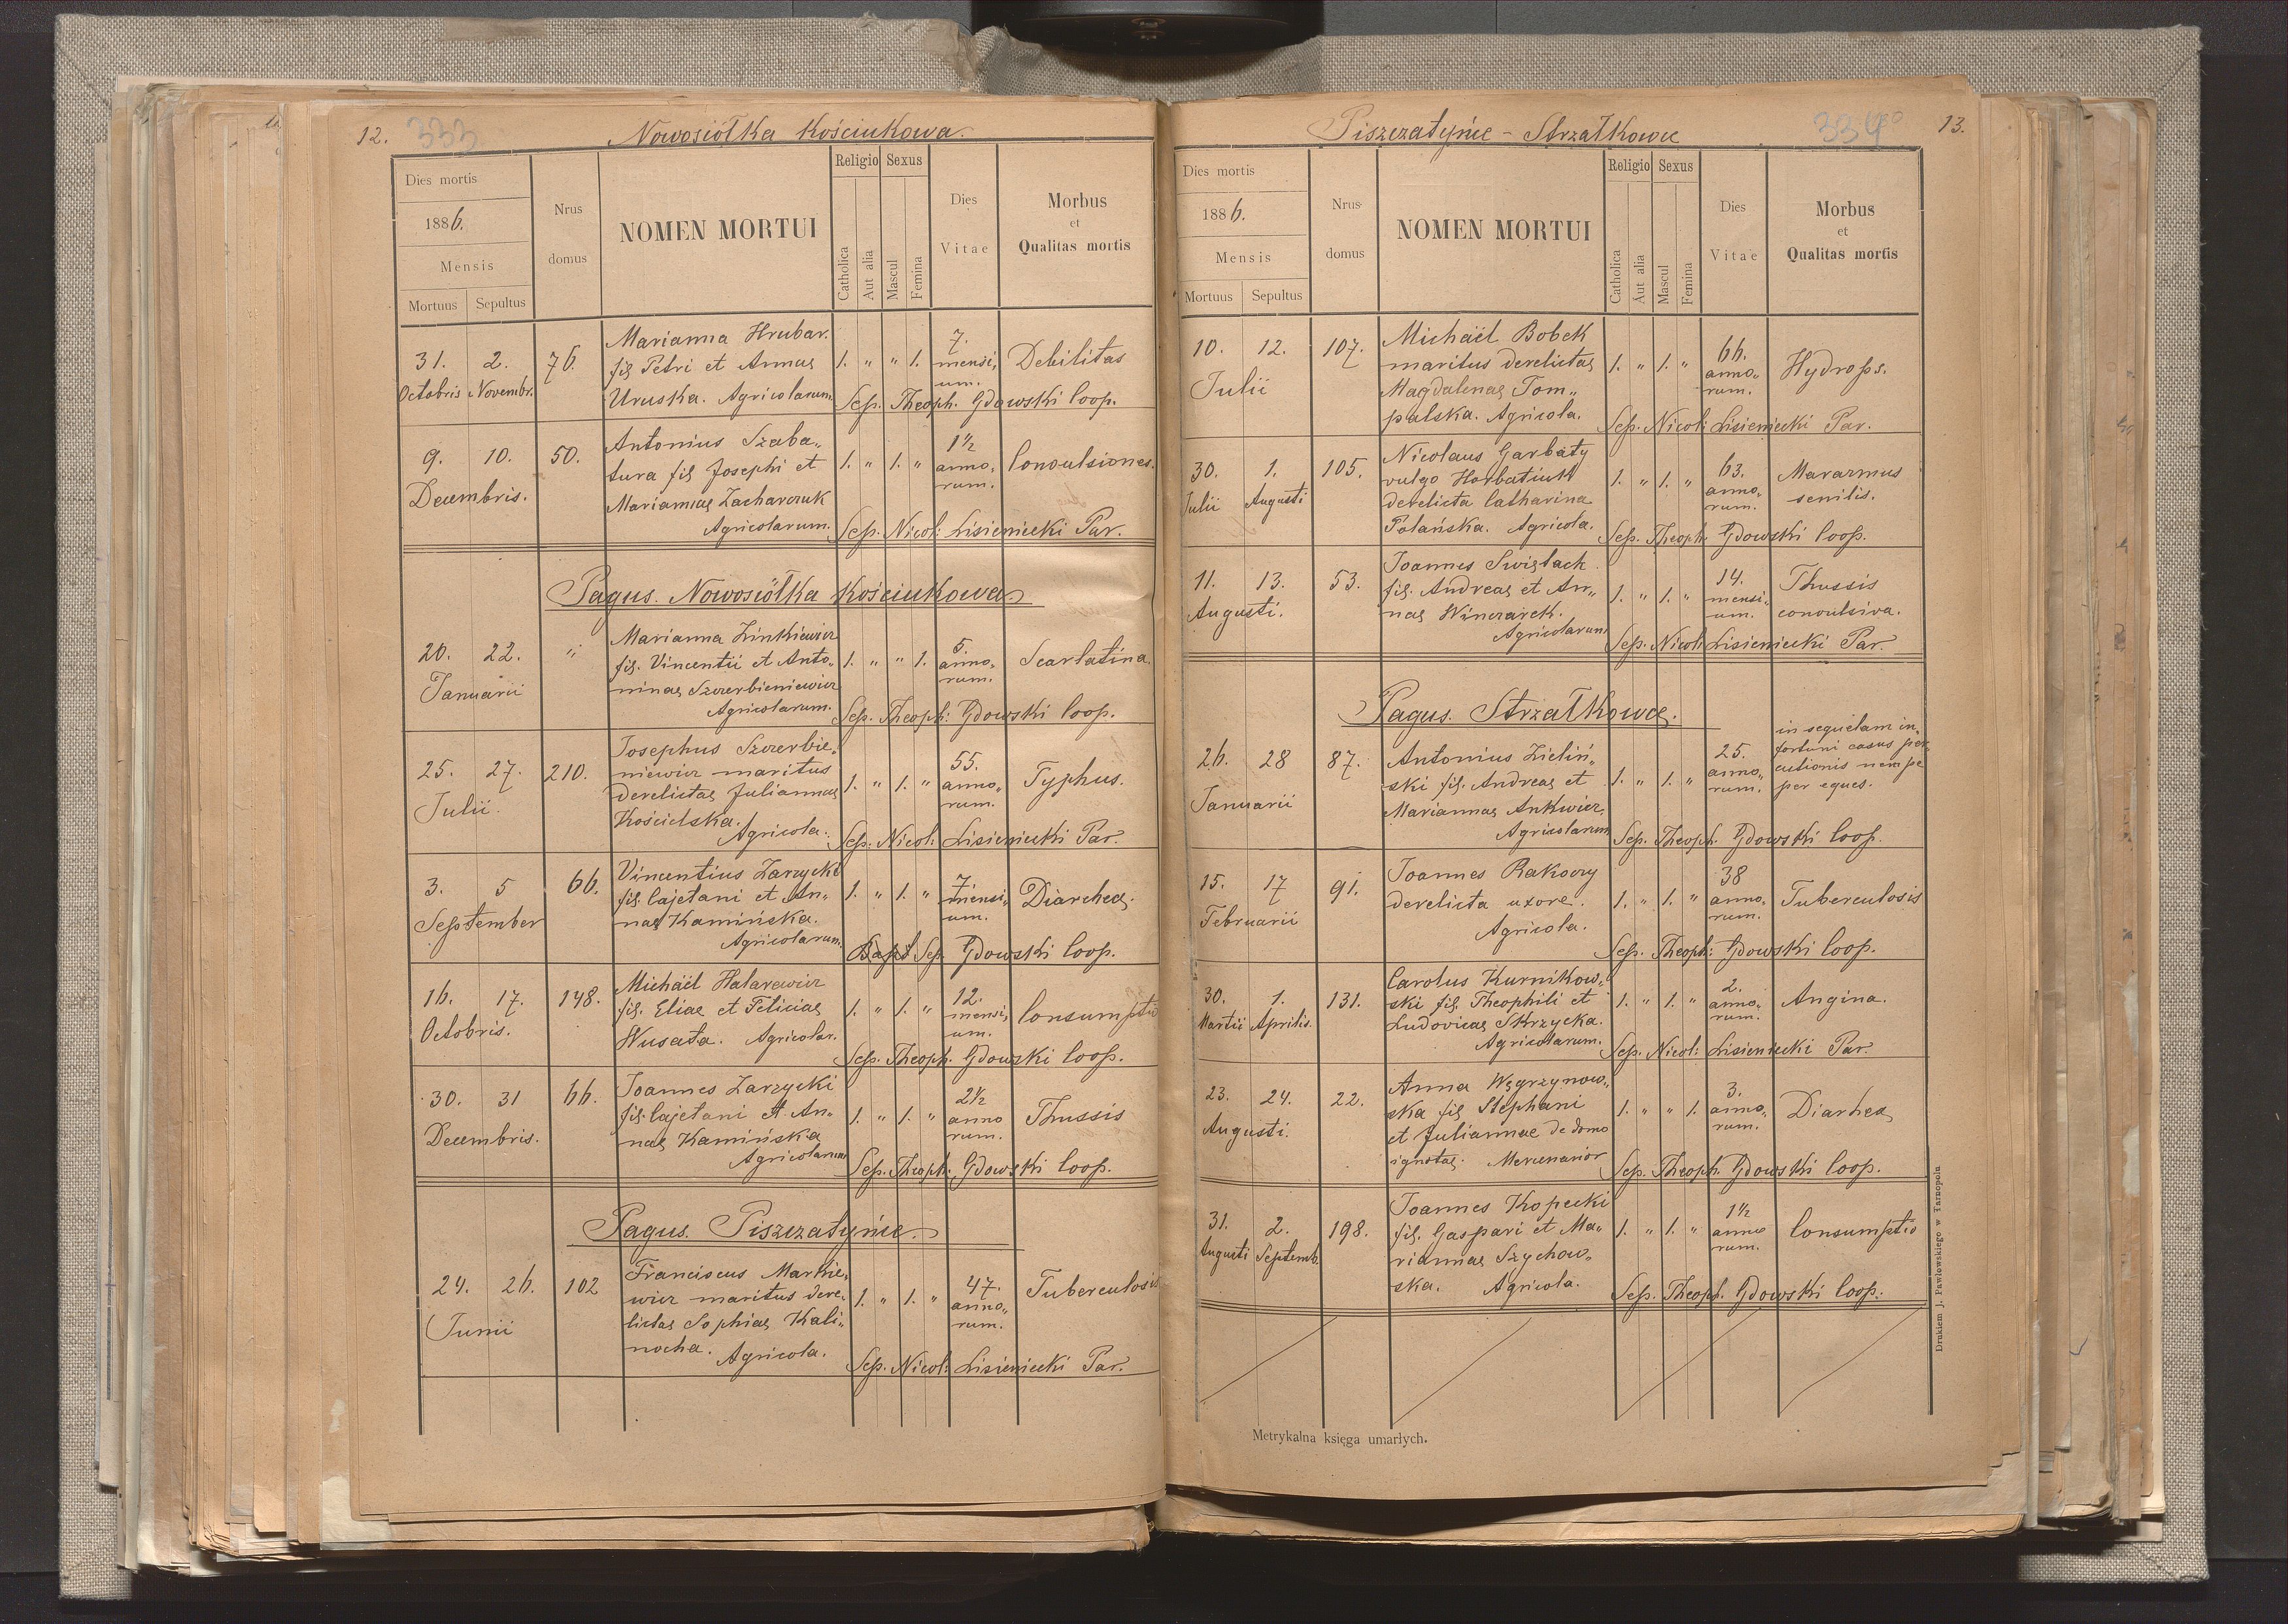 12. 333 Nowosiółka Kościukowa.
Dies mortis
1886.
Mensis
Mortuus Sepultus
Nrus
domus
NOMEN MORTUI
Religio Sexus
Catholica
Aut alia
Mascul
Femina
Dies
Vitae
Morbus
et
Qualitas mortis
31. 2. 76. Marianna Hrubar.
Octobris Novembr.
fil. Petri et Annae 1. " " 1. 7. mensi, um. Debilitas
Uruska. Agricolarum. Sep. Theoph. Gdowski Coop.
9. 10. 50. Antonius Szaba„
Decembris.
tura fil. Josephi et 1. " 1. " 1½ anno„ rum. Convulsiones.
Mariannae Zacharczuk
Agricolarum. Sep. Nicol: Lisieniecki Par.
Pagus. Nowosiółka Kościukowa.
20. 22. " Marianna Zinkiewicz
Januarii
fil. Vincentii et Anto„ 1. " " 1. 5. anno„ rum. Scarlatina.
ninae Szczerbieniewicz
Agricolarum. Sep. Theoph: Gdowski Coop.
25. 27. 210. Josephus Szczerbie„
Julii.
niewicz maritus 1. " 1. " 55. anno„ rum. Typhus.
derelictae Juliannae
Kościelska.
Agricola. Sep: Nicol: Lisieniecki Par.
3. 5 66. Vincentius Zarzycki
September
fil. Cajetani et An„ 1. " 1. " 7. mensi„ um. Diarchea.
nae Kamińska.
Agricolarum. Bapt Sep. Gdowski Coop.
16. 17. 148. Michaël Halarewicz
Octobris.
fil. Eliae et Feliciae 1. " 1. " 12. mensi, um. Consumptio
Wusata. Agricolar. Sep. Theoph. Gdowski Coop.
30. 31 66. Joannes Zarzycki
Decembris.
fil. Cajetani et An„ 1. " 1. " 2½ anno rum. Thussis
nae Kamińska
Agricolarum Sep. Theoph. Gdowski Coop.
Pagus. Piszczatyńce.
24. 26. 102 Franciscus Markie„
Junii
wicz maritus dere„ 1. " 1. " 47. anno„ rum. Tuberculosis
lictae Sophiae Kali„
nocha. Agricola. Sep. Nicol: Lisieniecki Par.
Piszczatyńce - Strzałkowce 334 13.
Dies mortis
1886.
Mensis
Mortuus Sepultus
Nrus
domus
NOMEN MORTUI
Religio Sexus
Catholica
Aut alia
Mascul
Femina
Dies
Vitae
Morbus
et
Qualitas mortis
10. 12. 107. Michaël Bobek
Julii
maritus derelictae 1. " 1. " 66. anno„ rum. Hydrops.
Magdalenae Tom„
palska. Agricola. Sep. Nicol: Lisieniecki Par.
30. 1. 105. Nicolaus Garbaty
Julii Augusti
vulgo Horbatiuk 1. " 1. " 63. anno„ rum. Marazmus senilis.
derelicta Catharina
Polańska. Agricola. Sep. Theoph. Gdowski Coop.
11. 13. 53. Joannes Swistach
Augusti.
fil. Andreae et An„ 1. " 1. " 14. mensi„ um. Thussis convulsiva.
nae Winczarek.
Agricolarum Sep. Nicol: Lisieniecki Par.
Pagus. Strzałkowce.
26. 28 87. Antonius Zieliń„
Januarii
ski fil. Andreae et 1. " 1. " 25. anno„ rum. in sequelam in„
fortuni casus per„
cutionis nempe
per eques.
Mariannae Ankwicz.
Agricolarum Sep. Theoph. Gdowski Coop.
15. 17 91. Joannes Rakoczy
Februarii
derelicta uxore. 1. " 1. " 38 anno„ rum. Tuberculosis
Agricola. Sep. Theoph: Gdowski Coop.
30. 1. 131. Carolus Kurnikow„
Martii Aprilis.
ski fil. Theophili et 1. " 1. " 2. anno„ rum. Angina.
Ludovicae Skrzycka.
Agricolarum. Sep. Nicol: Lisieniecki Par.
23. 24. 22. Anna Węgrzynow„
Augusti.
ska fil Stephani 1. " " 1. 3. anno„ rum. Diarhea
et Juliannae de domo
ignotae. Mercenarior Sep. Theoph. Gdowski Coop.
31. 2. 198. Joannes Kopecki
Augusti Septemb.
fil. Gaspari et Ma„ 1. " 1. " 1½ anno rum. Consumptio
riannae Szychow„
ska. Agricola. Sep. Theoph. Gdowski Coop.
Metrykalna księga umarłych.
Drukiem J. Pawłowskiego w Tarnopolu